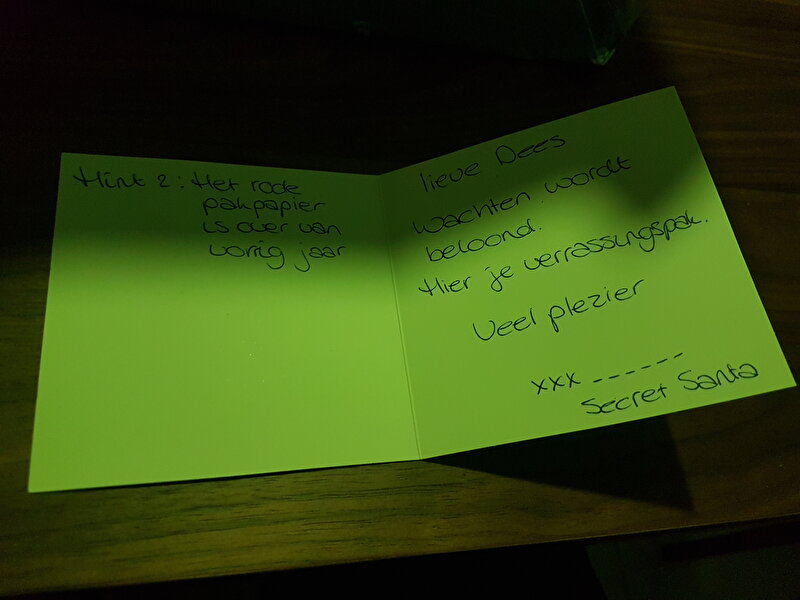 Hint 2: Het rode
pakpapier
is over van
vorrig jaar
lieve Dees
Wachten wordt
beloond.
Hier je verrassingspak.
Veel plezier
xxx ------
Secret Santa